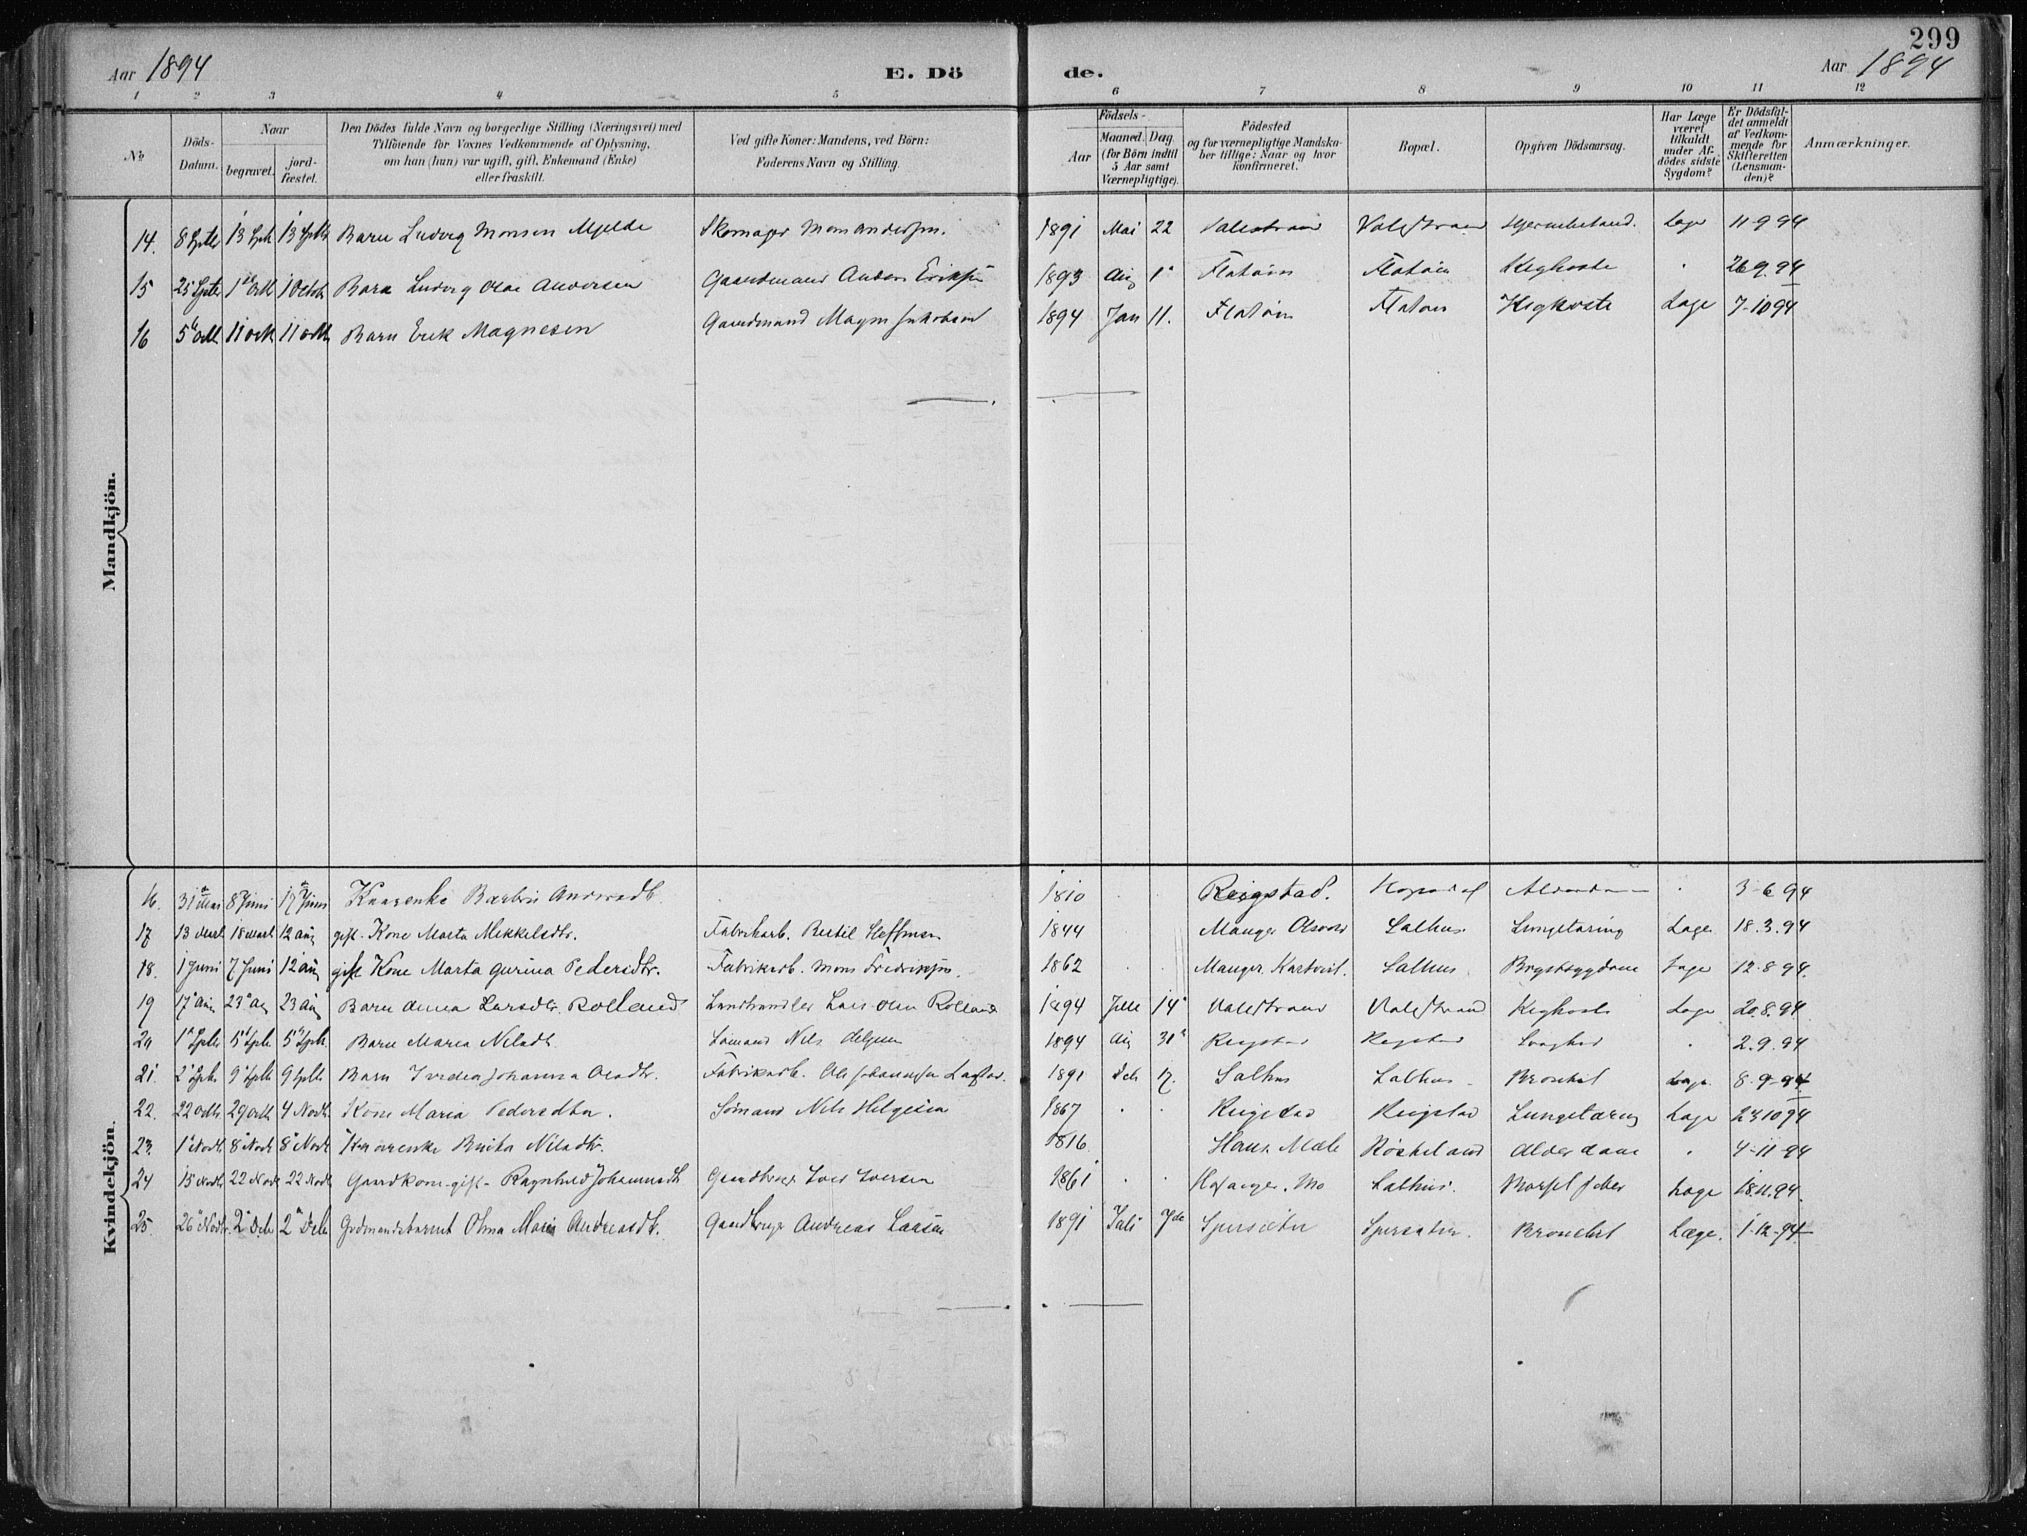 299
Aar 1894 E. Dö de. Aar 1894
1 2 3 4 5 6 7 8 9 10 11 12
No Döds-Datum. Naar begravet. jordfæstet. Den Dödes fulde Navn og borgerlige Stilling (Næringsvei) med Tilföiende for Voxnes Vedkommende af Oplysning, om han (hun) var ugift, gift, Enkemand (Enke) eller fraskilt. Ved gifte Koner: Mandens, ved Börn: Faderens Navn og Stilling. Födsels- Aar Maaned. Dag. (for Börn indtil 5 Aar samt Værnepligtige). Födested og for værnepligtige Mandskaber tillige: Naar og hvor konfirmeret. Bopæl. Opgiven Dödsaarsag. Har Læge været tilkaldt under Afdödes sidste Sygdom? Er Dödsfaldet anmeldt af Vedkommende for Skifteretten (Lensmanden)? Anmærkninger.
Mandkjön.
14. 8 Septb 13 Sptb 13 Sptb Barn Ludvig Monsen Mjelde Skomager Mons Anderssen. 1891 Mai 22 Valestrand Valestrand Lage 11-9 94
15 25 Septb 1 Octb 1 Octob Barn Ludvig Olai Andersen Gaardmand Anders Eriksen 1893 Aug 1 Flatøen Flatøen Kighoste 26.9.94
16 5 Octb 11 Octb 11 Octb Barn Erik Magnesen Gaardmand Magne Jakobsen 1894 Jan 11. Flatøen Flatøen Kighoste Lage 7-10 94
Kvindekjön.
16. 31 Mai 8 Juni 17 Juni Kaarenke 1810 Reigstad. Alderdom 3-6 94
17 13 Marts 18 Marts 12 Aug gift. Kone Marta Mikkelsdtr. Fabrikarb. Bertil Steffensen 1844 Manger Salhus Lungetæring Lage 18.3.94
18. 1 Juni 7 Juni 12 Aug gift Kone Marta Gurina Pedersdtr. Fabrikarb. Mons Fredriksen. 1862 Manger Salhus Brystsygdom Lage 12-8 94
19 17 Aug 23 Aug 23 Aug Barn Anna Larsdtr. Rolland Landhandler Lars Olsen Rolland 1894 14 Valestrand Valestrand Kighoste Lage 20.8.94
20 1 Sptb 5 Sptb 5 Sptb Barn Maria Nilsdtr. Sømand Nils Helgesen 1894 Aug 31 Reigstad Reigstad Svaghed 2.9.94
21. 2 Sptb 9 Sptb 9 Sptb Barn Johanna Olsdtr. Fabrikarb. Ole Johannesen 1891 17. Salhus Salhus Bronchit Lage 8-9-94
22. 22 Octb 29 Octb 4 Novb Kone Maria Pedersdtr. Sømand Nils Helgesen 1867 Reigstad Reigstad Lungetæring Lage 23.10 94
23. 1 Novb 8 Novb 8 Novb Kaarenke Brita Nilsdtr. 1816 Haus. Mæle Røskeland Alderdom 4-11-94
24 15 Novb 22 Novb 22 Novb Gaardkone gift Ragnhild Johannesdtr Gaardbruger Iver Iversen 1861 Mo Salhus. Barselfeber Lage 18.11.94.
25. 26 Novbr. 2 Decb 2 Decb Grdmandsbarnet Olina Maria Andreasdtr. Gaardbruger Andreas Larsen 1891 Juli 7de Bronchit Læge. 1-12-94